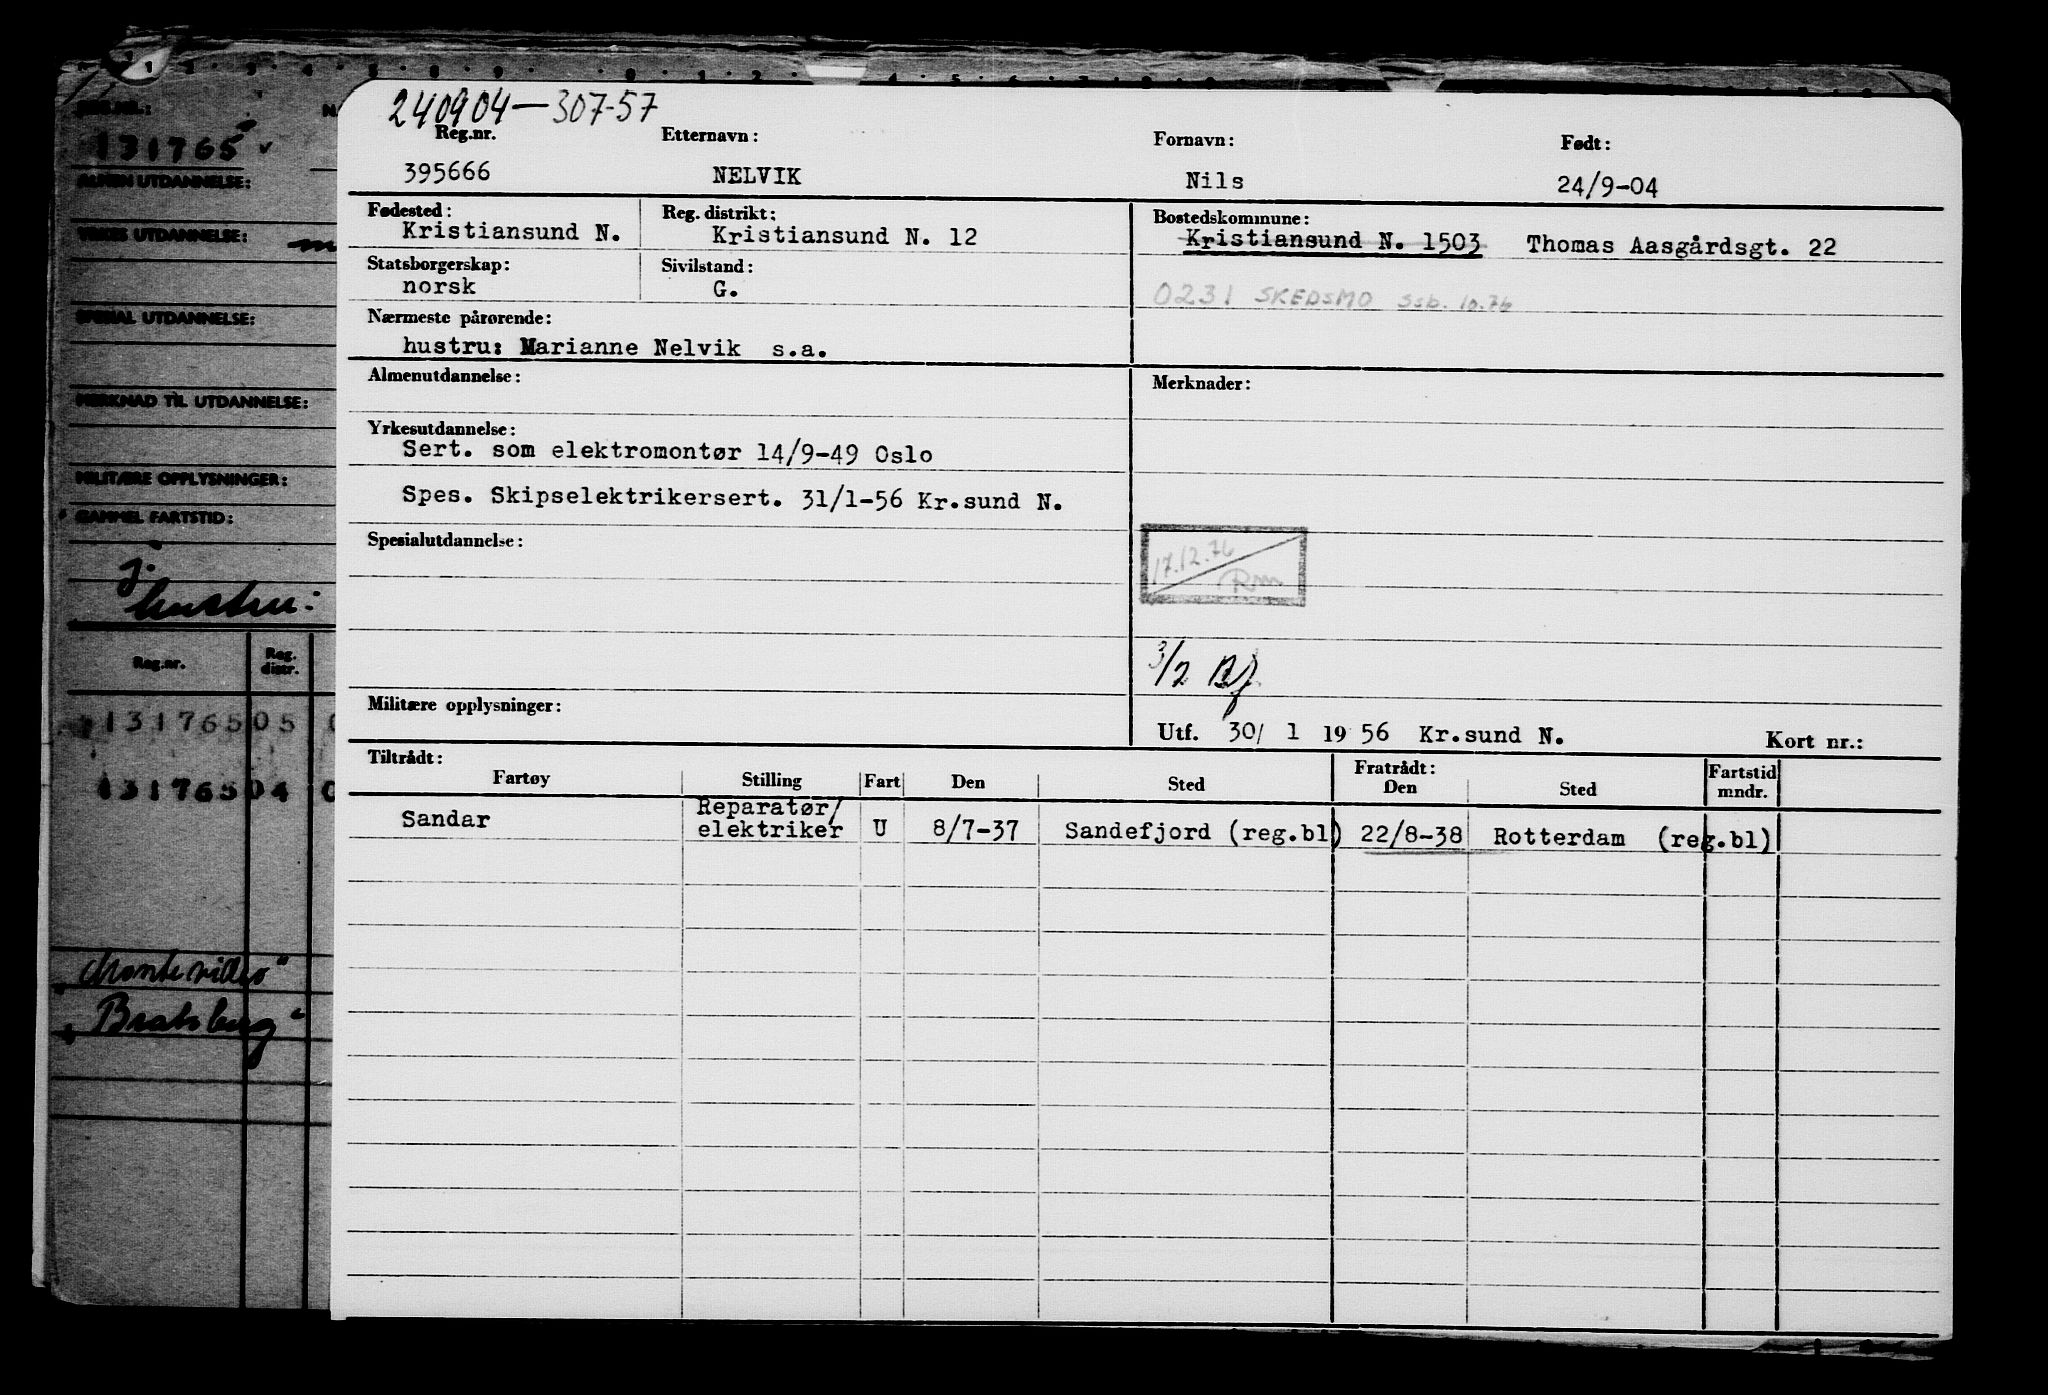 240904-307-57
Reg.nr. Etternavn: Fornavn: Født:
395666 NELVIK Nils 24/9-04
Fødested: Reg. distrikt: Bostedskommune:
Kristiansund N. Kristiansund N. 12 Kristiansund N. 1503 Thomas Aasgårdsgt. 22
Statsborgerskap: Sivilstand:
norsk G.
0231 SKEDSMO SSB. 10.76
Nærmeste pårørende:
hustru: Marianne Nelvik s.a.
Almenutdannelse: Merknader:
Yrkesutdannelse:
Sert. som elektromontør 14/9-49 Oslo
Spes. Skipselektrikersert. 31/1-56 Kr.sund N.
Spesialutdannelse:
17.12.76
Rm
3/2
Militære opplysninger:
Utf. 30/ 1 19 56 Kr.sund N. Kort nr.:
Tiltrådt: Fratrådt:
Fartøy Stilling Fart Den Sted Den Sted Fartstid mndr.
Sandar Reparatør/
elektriker U 8/7-37 Sandefjord (reg.bl) 22/8-38 Rotterdam (reg.bl)
131765
ALMEN UTDANNELSE:
YRKES UTDANNELSE:
SPESIAL UTDANNELSE:
MERKNAD TIL UTDANNELSE:
MILITÆRE OPPLYSNINGER:
GAMMEL FARTSTID:
hustru:
Reg.nr. Reg. distr.
131765 05 0
131765 04 0
"Montevideo"
"Bratsberg"